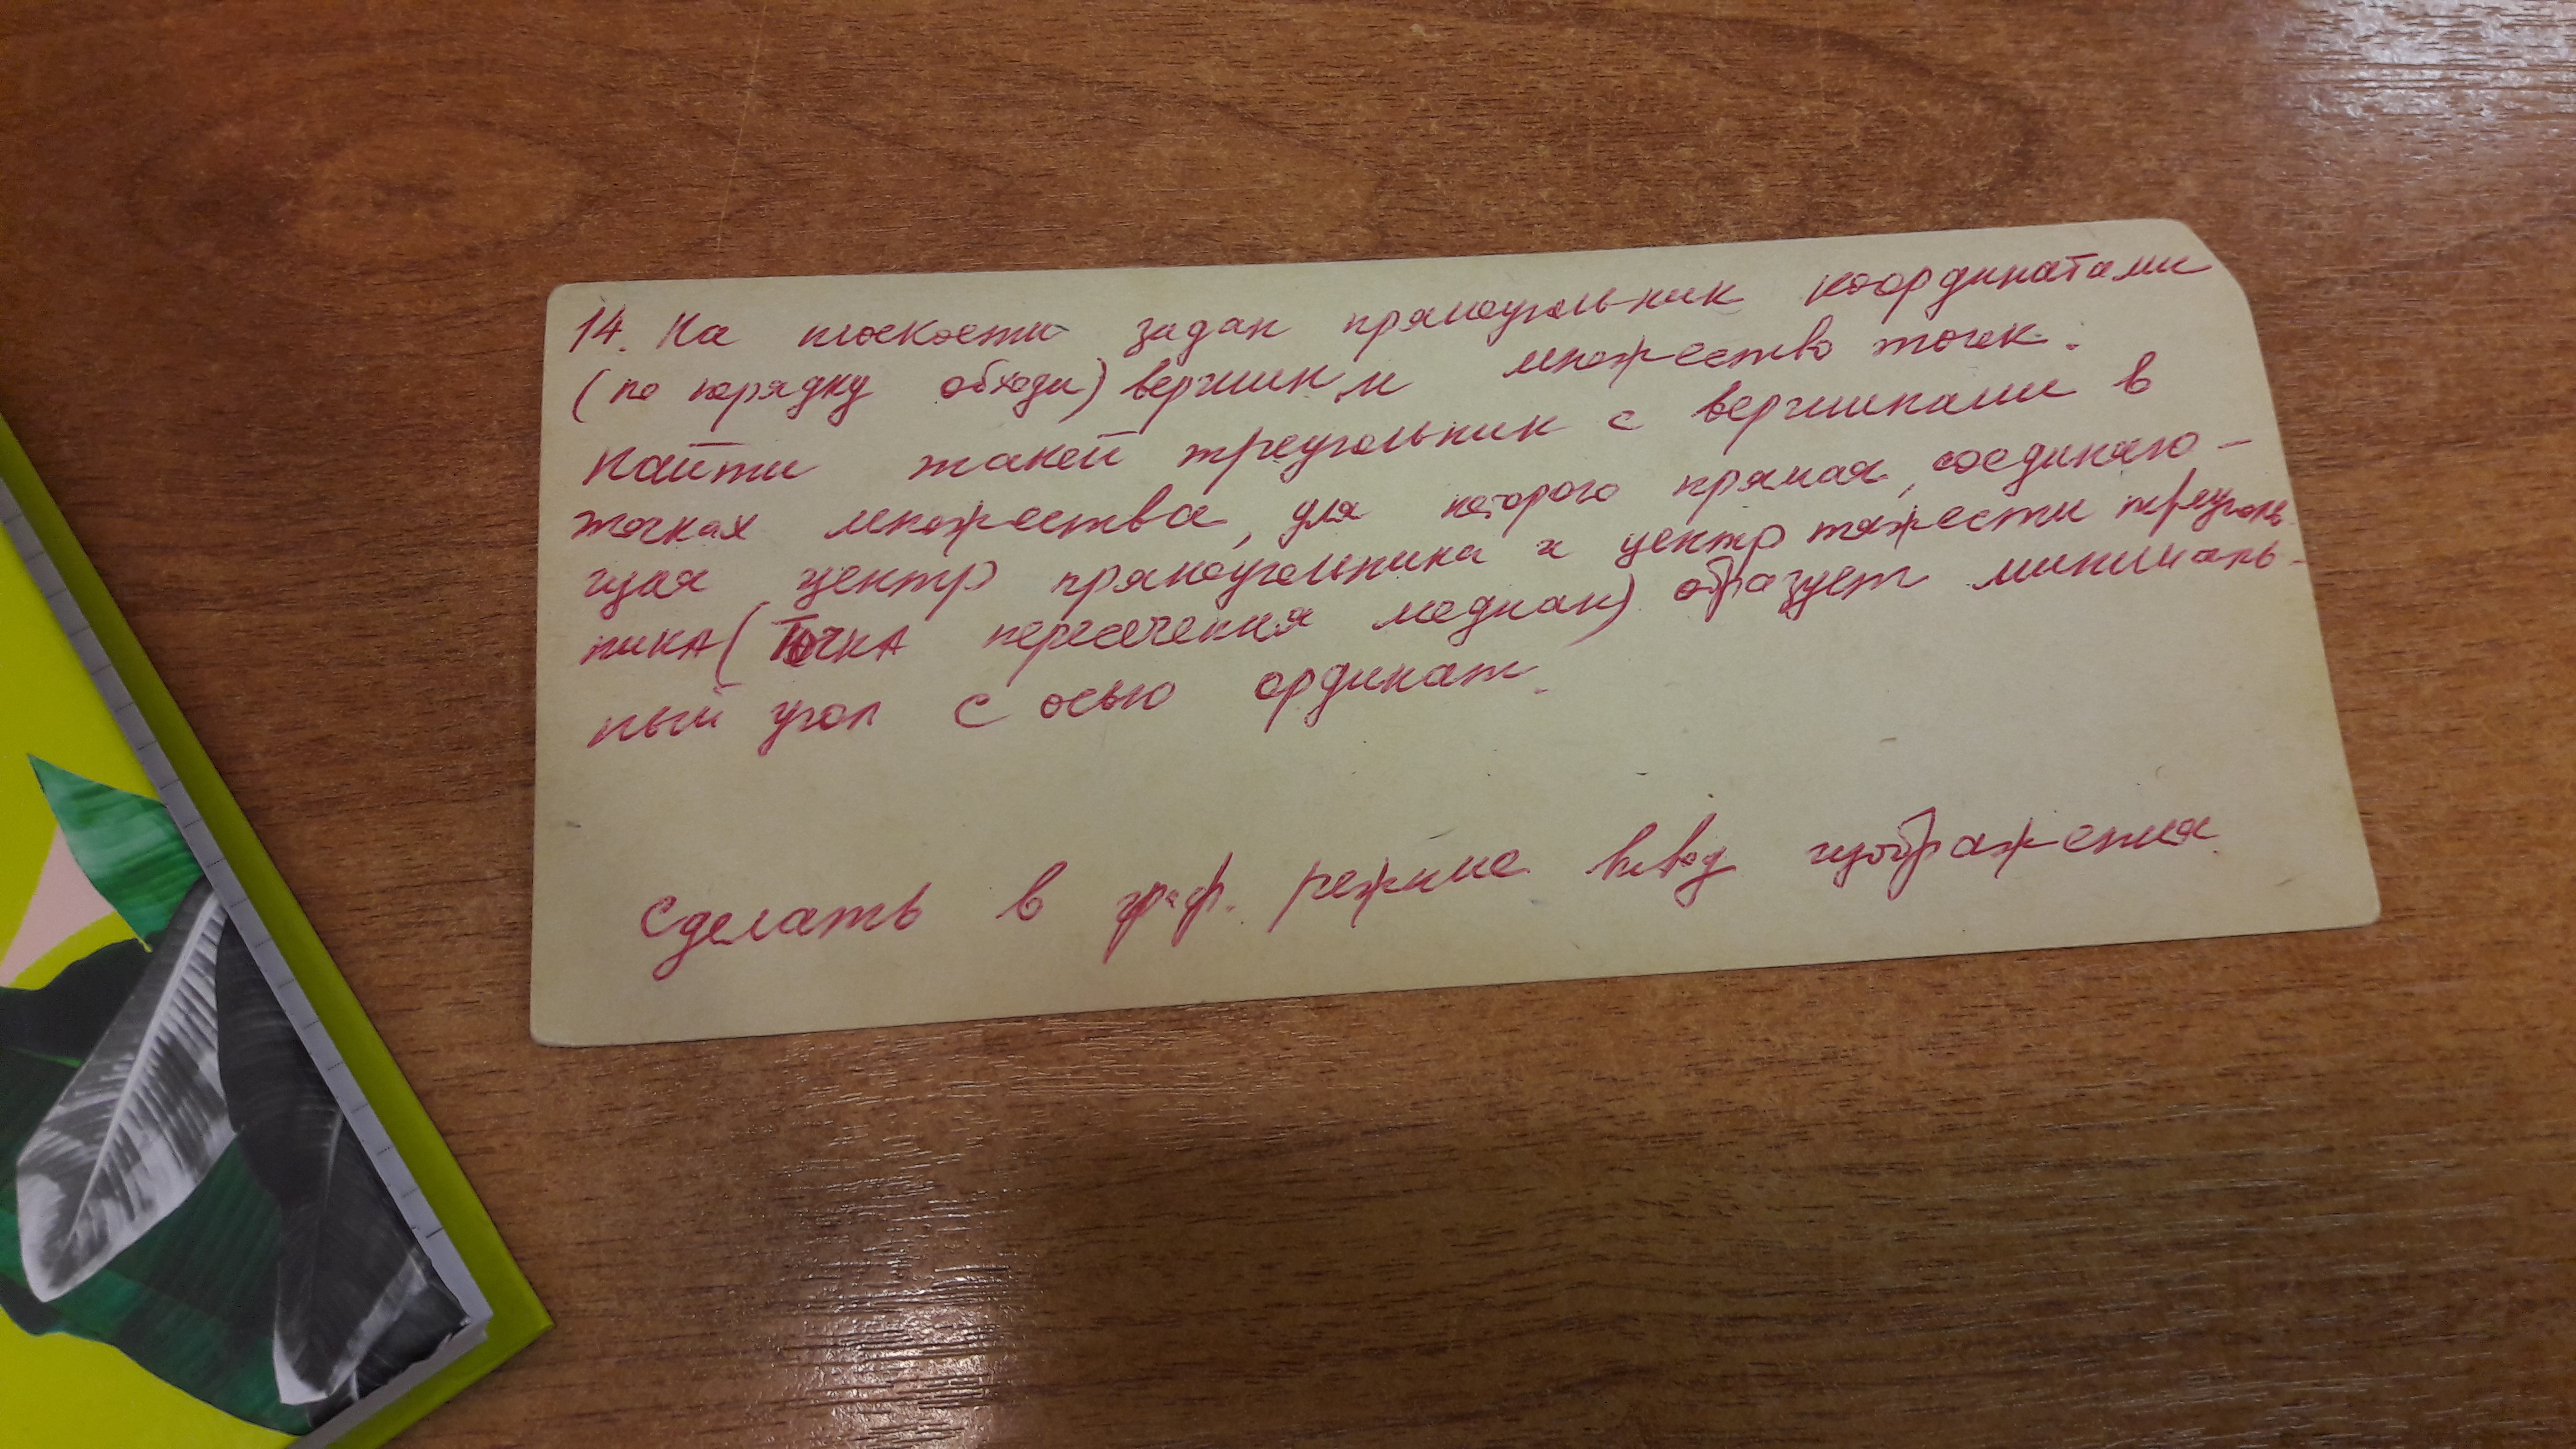 14. На плоскости задан прямоугольник координатами
(по порядку обхода) вершин и множество точек.
Найти такой треугольник с вершинами в
точках множества, для которого прямая, соединяю-
щая центр прямоугольника и центр тяжести треуголь
ника (точка пересечения медиан) образует минималь-
ный угол с осью ординат.
Сделать в граф. режиме вывод изображения